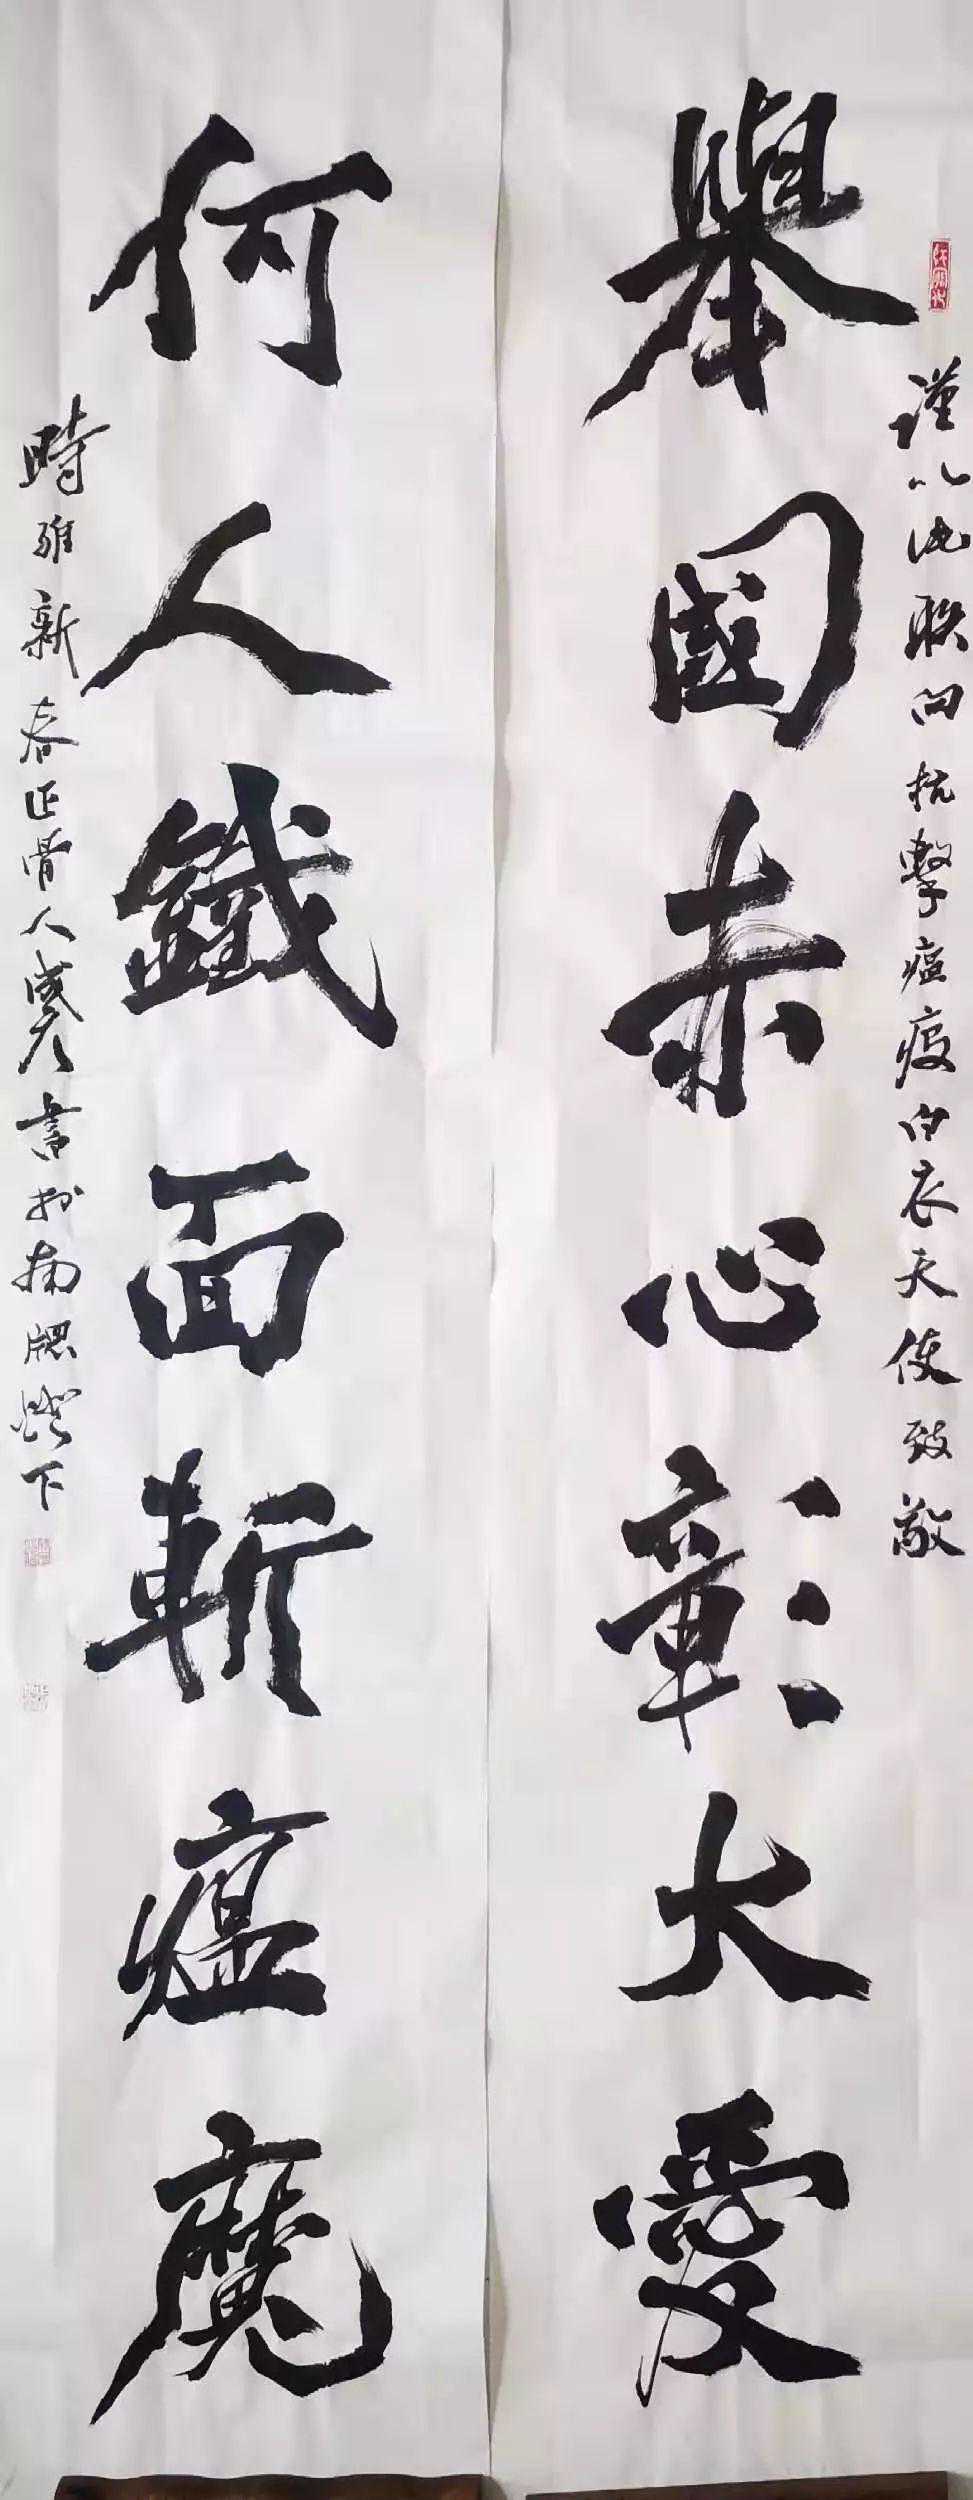 謹以此联向抗擊瘟疫白衣天使致敬
舉國赤心彰大愛
何人鐵面斬瘟魔
時維新春正骨人書於南窗燈下